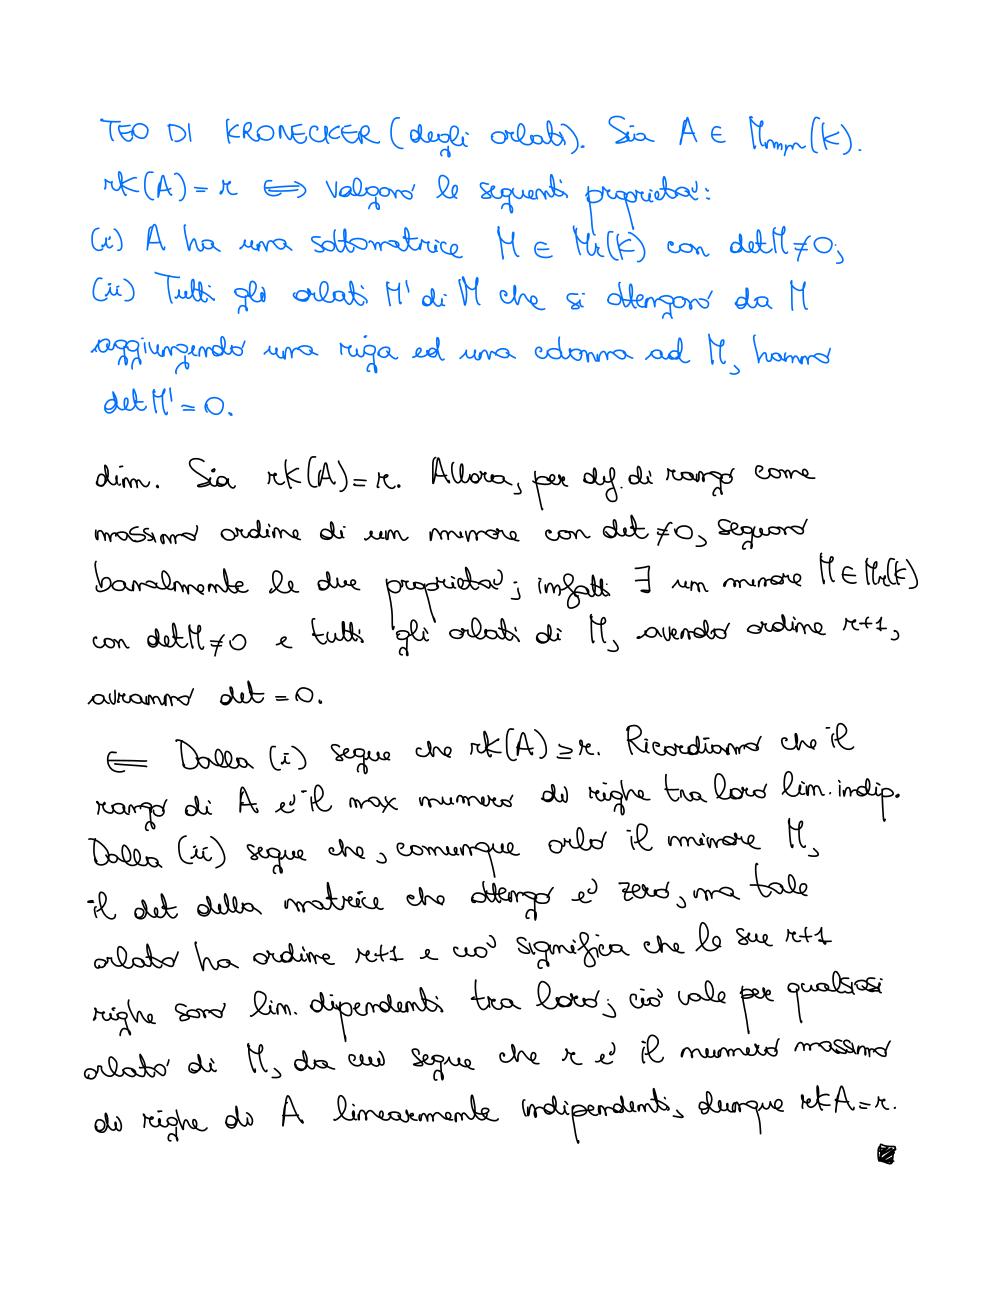 TEO DI KRONECKER (degli orlati). Sia A ∈ Mm,n(K).
rk(A) = r ⟺ valgono le seguenti proprieta':
(i) A ha una sottomatrice M ∈ Mr(K) con detM≠0;
(ii) Tutti gli orlati M' di M che si ottengono da M
aggiungendo una riga ed una colonna ad M, hanno
detM' = 0.
dim. Sia rk(A) = r. Allora, per def. di rango come
massimo ordine di un minore con det ≠ 0, seguono
banalmente le due proprieta'; infatti ∃ un minore M ∈ Mr(K)
con detM≠0 e tutti gli orlati di M, avendo ordine r+1,
avranno det = 0.
⟸ Dalla (i) segue che rk(A) ≥ r. Ricordiamo che il
rango di A e' il max numero di righe tra loro lin. indip.
Dalla (ii) segue che, comunque orlo il minore M,
il det della matrice che ottengo e' zero, ma tale
orlato ha ordine r+1 e cio' significa che le sue r+1
righe sono lin. dipendenti tra loro; cio' vale per qualsiasi
orlato di M, da cui segue che r e' il numero massimo
di righe di A linearmente indipendenti, dunque rkA = r.